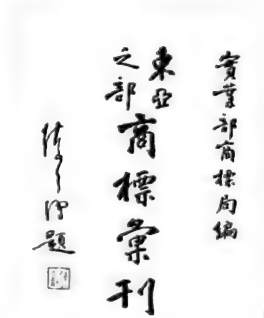 實業部商標局編
東亞
之部
商標彙刊
題